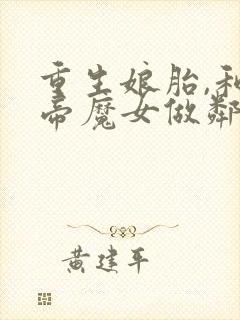 重生娘胎,和
帝魔女做鄰
黄建平